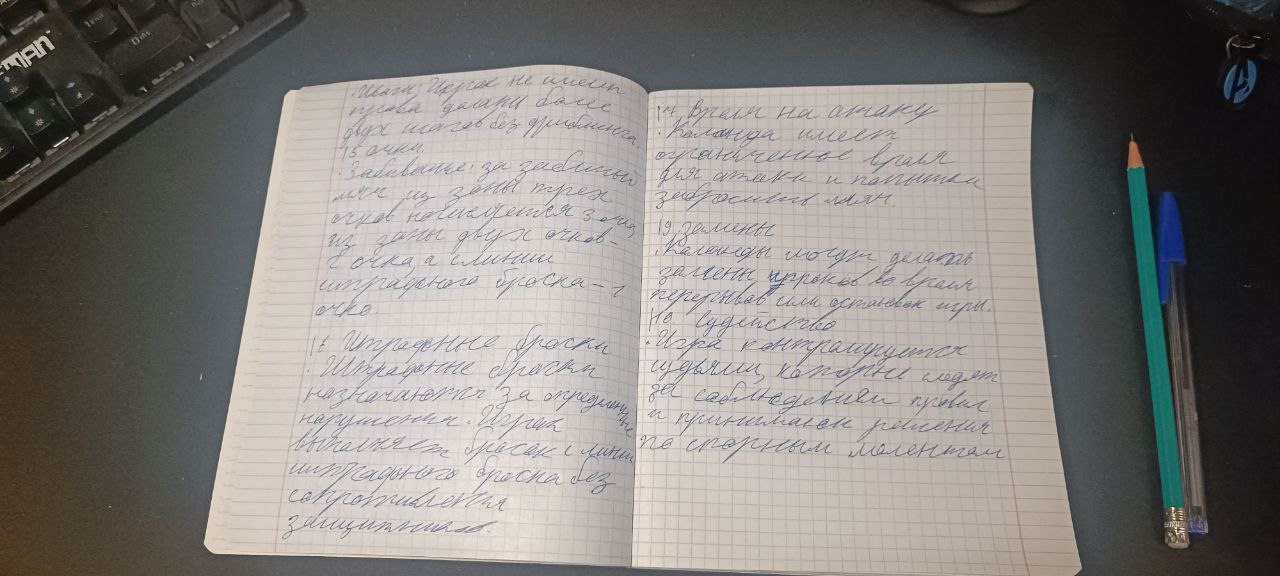 MAN
· Шаги: Игрок не имеет
права делать более
двух шагов без дриблинга.
15 очки.
· Забивание: за забитый
мяч из зоны трех
очков начисляется 3 очка,
из зоны двух очков –
2 очка, а с линии
штрафного броска – 1
очко.
16 Штрафные броски
· Штрафные броски
назначаются за определенные
нарушения. Игрок
выполняет бросок с линии
штрафного броска без
сопротивления
защитников
17. Время на атаку
· Команда имеет
ограниченное время
для атаки и попытки
забросить мяч.
19. замены
· Команды могут делать
замены игроков во время
перерывов или остановок игры.
судейство
· Игра контролируется
судьями, которые следят
за соблюдением правил
и принимают решения
по спорным моментам